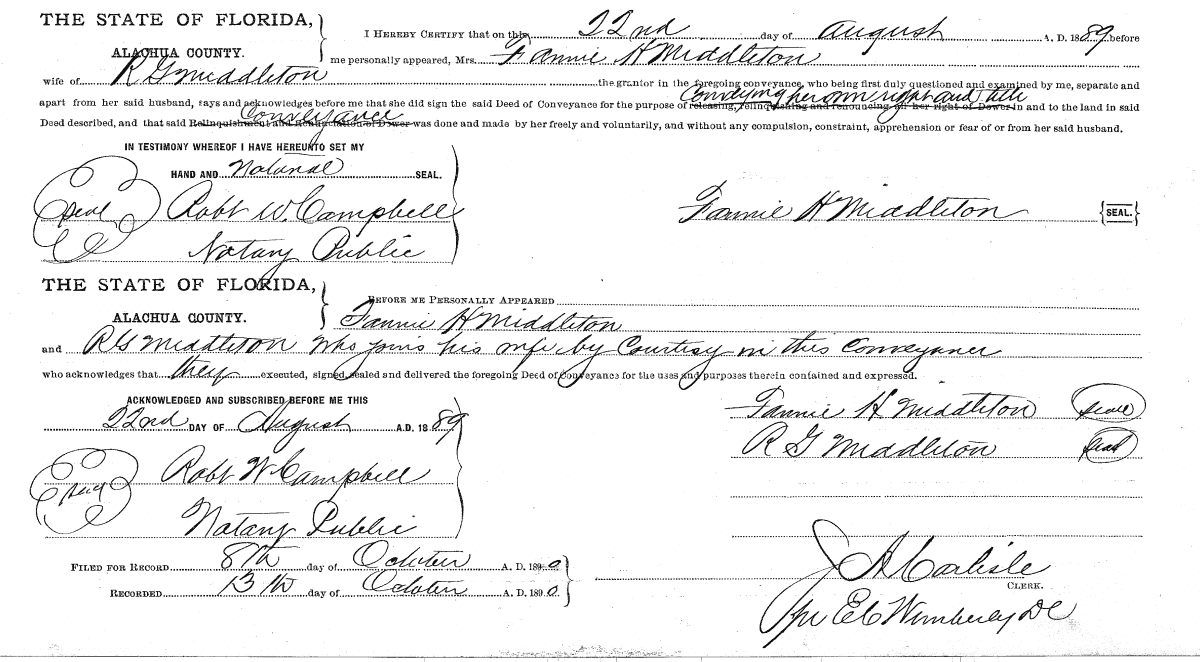 THE STATE OF FLORIDA,
ALACHUA COUNTY.
I HEREBY CERTIFY that on this 22nd day of August A. D. 1889 before
me personally appeared, Mrs. Fannie H Middleton
wife of R G Middleton the grantor in the foregoing conveyance, who being first duly questioned and examined by me, separate and
Conveying her own right and title
apart from her said husband, says and acknowledges before me that she did sign the said Deed of Conveyance for the purpose of releasing, relinquishing and renouncing all her right of Dower in and to the land in said
Conveyance
Deed described, and that said Relinquishment and Renunciation of Dower was done and made by her freely and voluntarily, and without any compulsion, constraint, apprehension or fear of or from her said husband.
IN TESTIMONY WHEREOF I HAVE HEREUNTO SET MY
HAND AND Notarial SEAL.
Seal Robt W. Campbell
Notary Public
Fannie H Middleton {SEAL.}
THE STATE OF FLORIDA,
ALACHUA COUNTY.
BEFORE ME PERSONALLY APPEARED
Fannie H Middleton
and R G Middleton who joins his wife by Courtisy in this Conveyance
who acknowledges that they executed, signed sealed and delivered the foregoing Deed of Conveyance for the uses and purposes therein contained and expressed.
ACKNOWLEDGED AND SUBSCRIBED BEFORE ME THIS
22nd DAY OF August A.D. 1889
Seal Robt W Campbell
Notary Public
Fannie H Middleton Seal
R G Middleton Seal
FILED FOR RECORD 8th day of October A. D. 1890
RECORDED 13th day of October A. D. 1890
J A Carlisle
CLERK.
per E C Wimberly D C